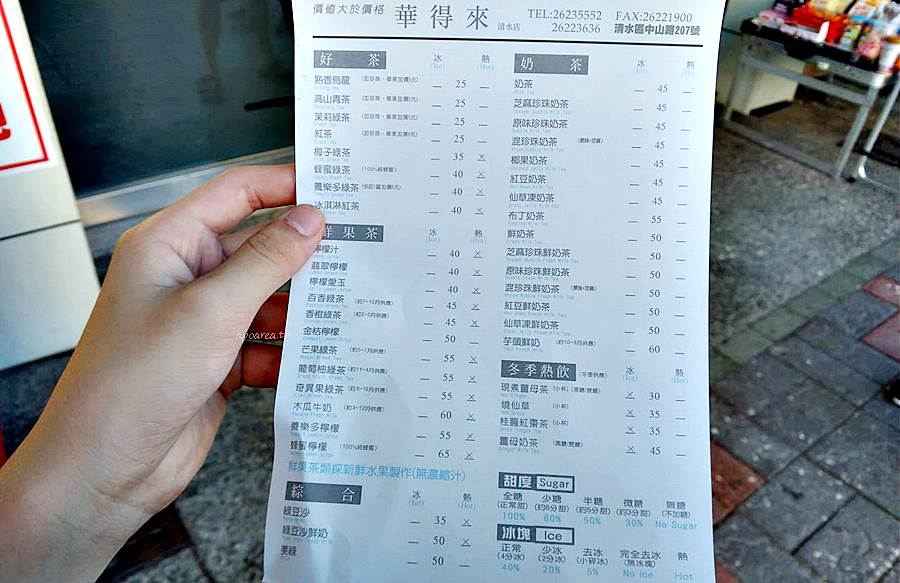 價值大於價格 華得來 清水店
TEL:26235552 FAX:26221900
26223636 清水區中山路207號
好茶 冰 熱
(Hot)
熟香烏龍 (加珍珠、椰果加價5元) — 25 —
高山青茶 (加珍珠、椰果加價5元) — 25 —
茉莉綠茶 (加珍珠、椰果加價5元) — 25 —
紅茶 (加珍珠、椰果加價5元) — 25 —
梅子綠茶 — 35 ×
蜂蜜綠茶 (100%純蜂蜜) — 40 ×
養樂多綠茶 — 40 ×
冰淇淋紅茶 — 40 ×
鮮果茶 冰 熱
(Hot)
檸檬汁 — 40 ×
翡翠檸檬 — 40 ×
檸檬愛玉 — 40 ×
百香綠茶 (約7-12月供應) — 45 ×
香橙綠茶 (約2-5月供應) — 45 ×
金桔檸檬 — 50 —
芒果綠茶 (約5-7月供應) — 55 ×
葡萄柚綠茶 (約11-4月供應) — 55 ×
奇異果綠茶 (約5-10月供應) — 55 ×
木瓜牛奶 (約3-12月供應) — 60 ×
養樂多檸檬 — 55 ×
蜂蜜檸檬 (100%純蜂蜜) — 65 ×
鮮果茶類採新鮮水果製作(無濃縮汁)
綜合 冰 熱
(Hot)
綠豆沙 — 35 ×
綠豆沙鮮奶 — 50 ×
— 50 —
奶茶 冰 熱
(Hot)
奶茶 — 45 —
Milk Tea
芝麻珍珠奶茶 — 45 —
原味珍珠奶茶 — 45 —
混珍珠奶茶 (原味+芝麻) — 45 —
椰果奶茶 — 45 —
紅豆奶茶 — 45 —
仙草凍奶茶 — 45 —
布丁奶茶 — 55 —
鮮奶茶 — 50 —
芝麻珍珠鮮奶茶 — 50 —
原味珍珠鮮奶茶 — 50 —
混珍珠鮮奶茶 (原味+芝麻) — 50 —
紅豆鮮奶茶 — 50 —
仙草凍鮮奶茶 — 50 —
芋頭鮮奶 (約10-3月供應) — 60 —
冬季熱飲 (冬季供應) 冰 熱
(Hot)
現煮薑母茶 (小杯) (黑糖/蔗糖) × 30 —
燒仙草 (小杯) × 35 —
桂圓紅棗茶 (小杯) × 35 —
薑母奶茶 (黑糖/蔗糖) × 45 —
甜度 Sugar
全糖 少糖 半糖 微糖 無糖
(正常甜) (約8分甜) (約5分甜) (約3分甜) (不加糖)
100% 80% 50% 30% No Sugar
冰塊 Ice
正常 少冰 去冰 完全去冰 熱
(4分冰) (2分冰) (小碎冰) (無冰塊)
40% 20% 5% No Ice Hot